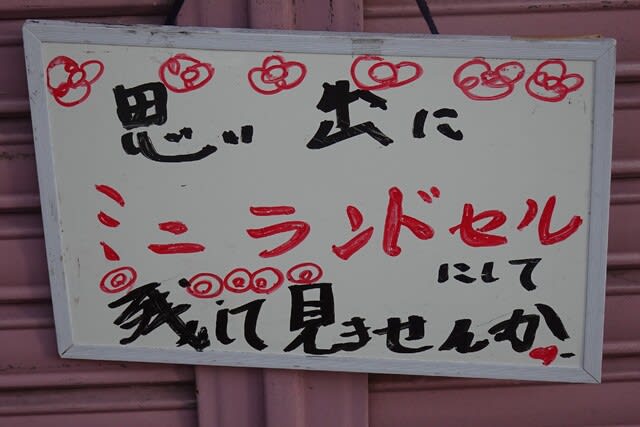 思い出に
ミニランドセル
にして
残して見ませんか